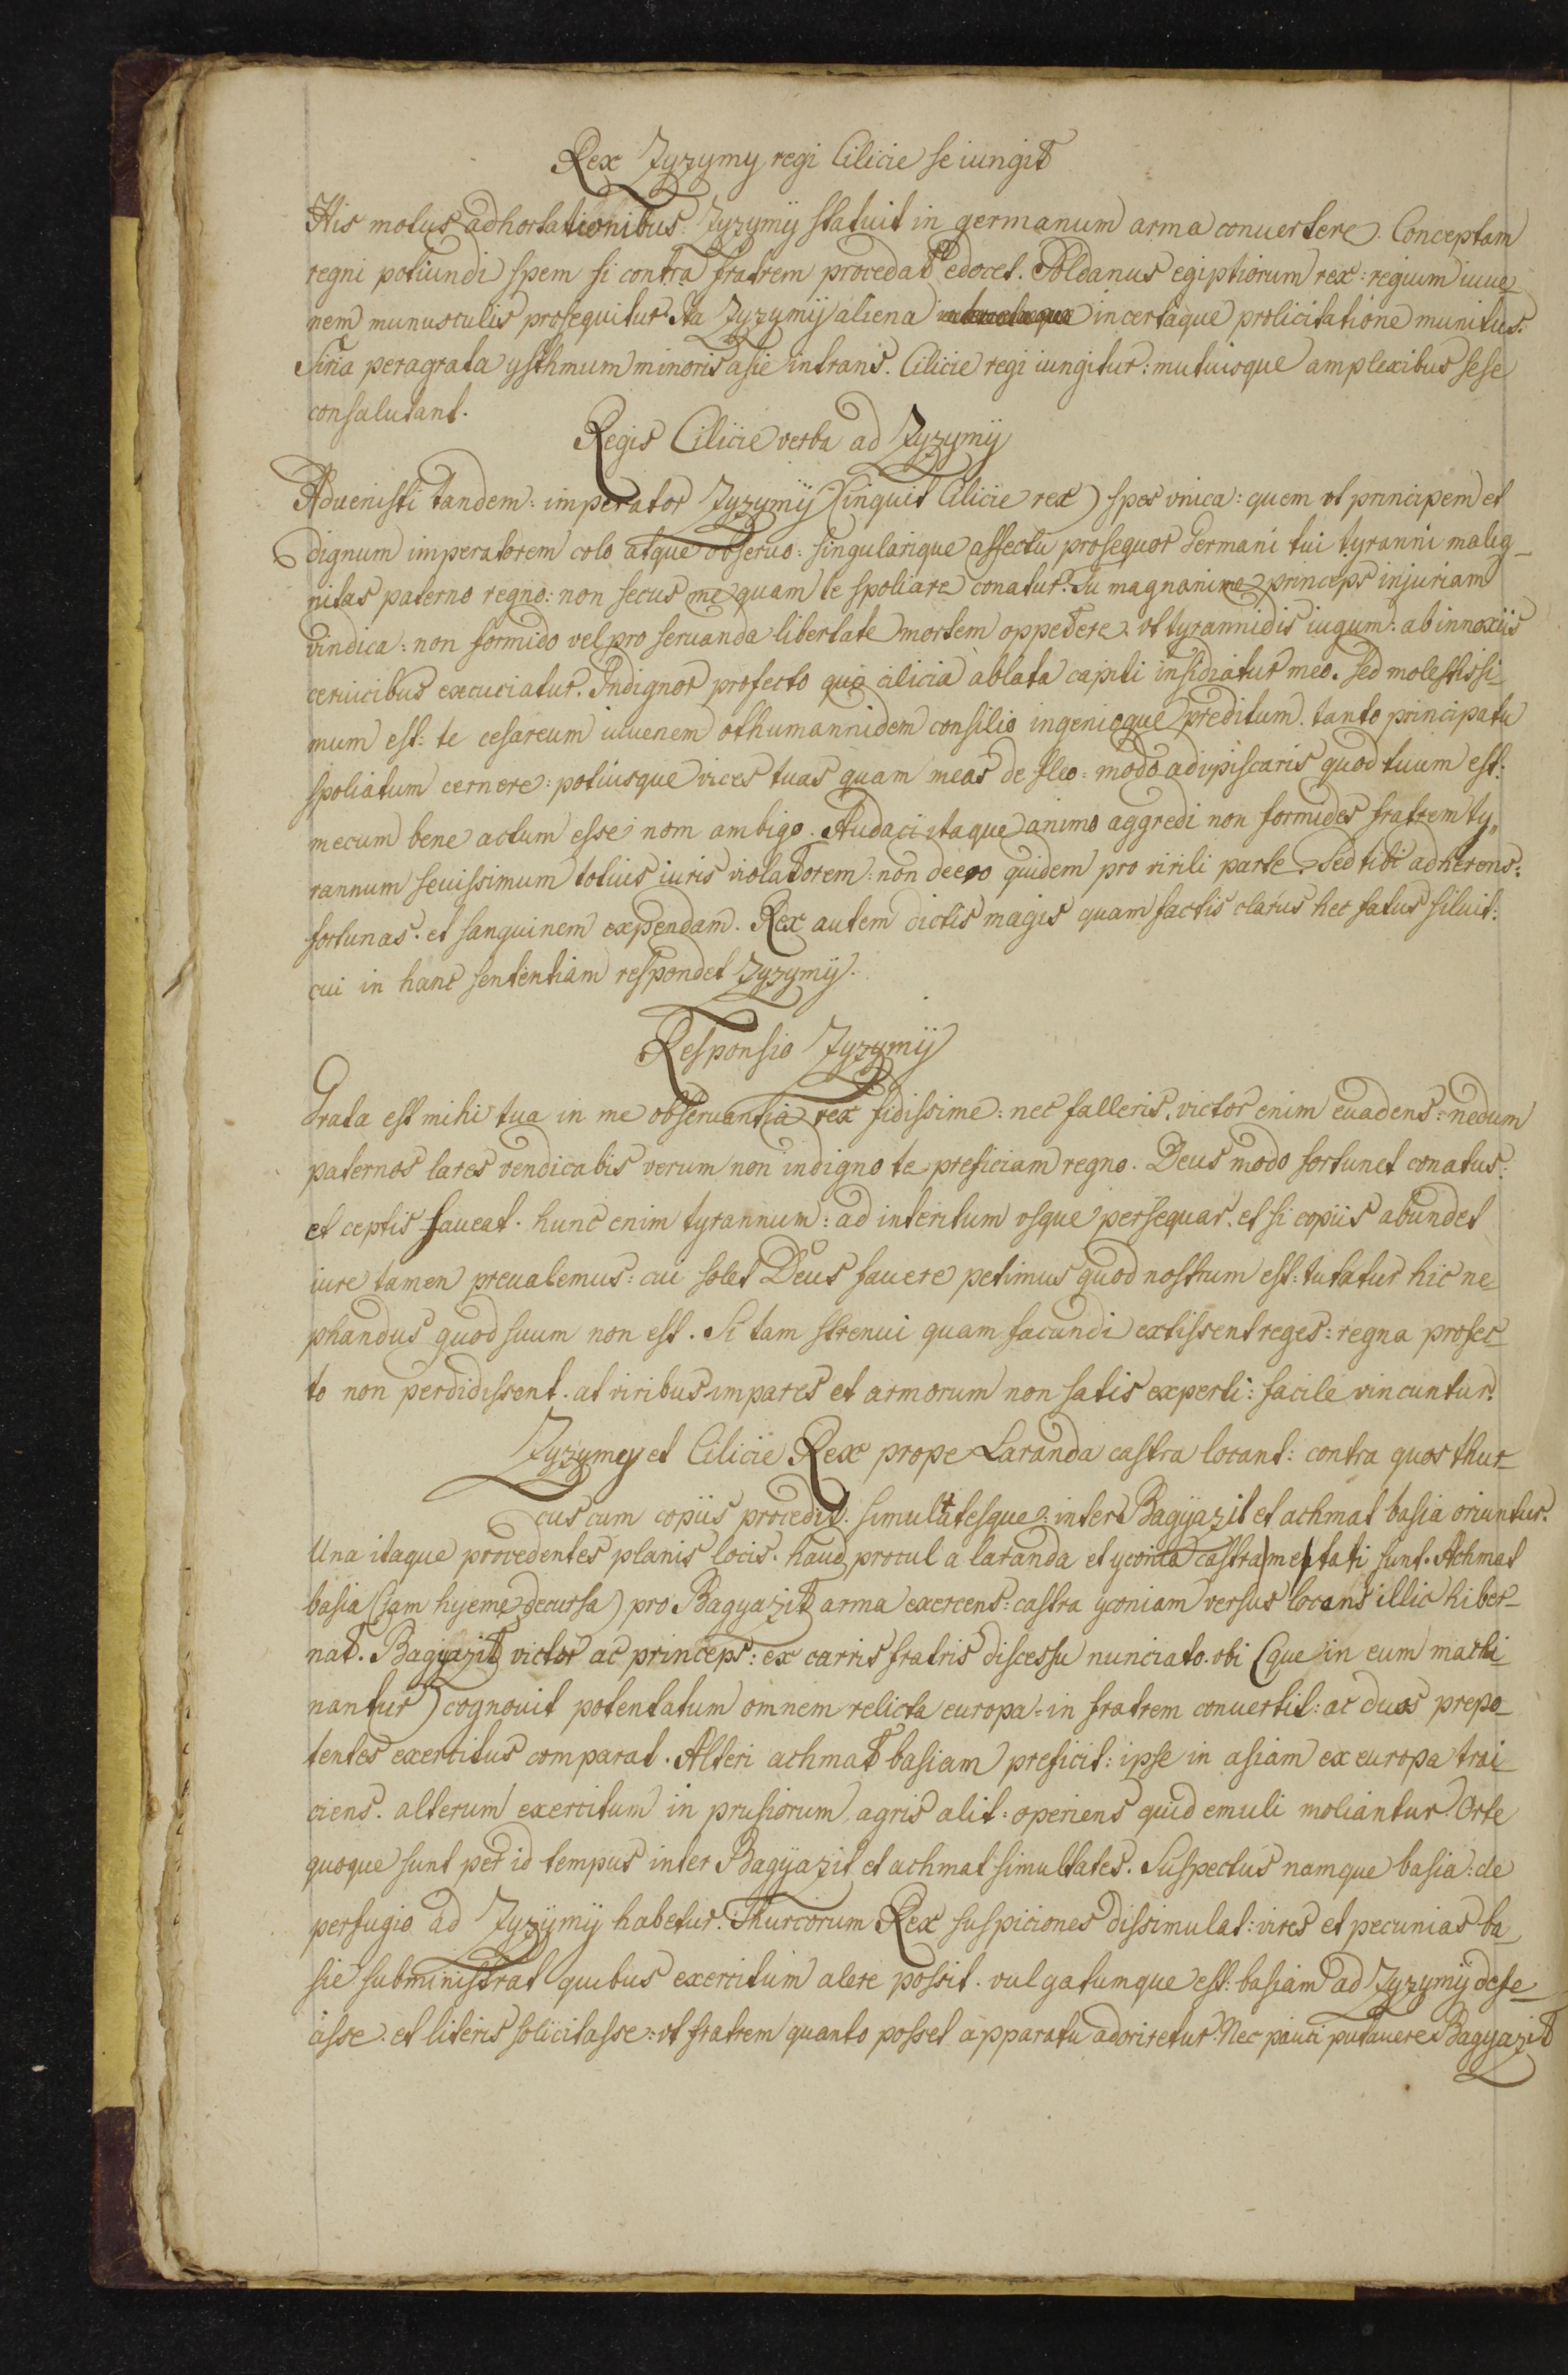 Rex Zyzymy regi Cilicie se iungit
His motus adhortationibus Zyzymÿ statuit in germanum arma conuertere. Conceptam
regni potiundi spem si contra fratrem procedat edocet. Soldanus egiptiorum rex: regium iuue
nem munusculis prosequitur. Ita Zyzymÿ aliena incertaque prolicitatione munitus.
Siria peragrata ysthmum minoris asie intrans. Cilicie regi iungitur: mutuisque amplexibus sese
consalutant.
Regis Cilicie verba ad Zyzymÿ
Aduenisti tandem: imperator Zyzymÿ (inquit Cilicie rex) spes vnica: quem vt principem et
dignum imperatorem colo atque obseruo: singularique affectu prosequor Germani tui tyranni malig_
nitas paterno regno: non secus me quam te spoliare conatur. Tu magnanime princeps injuriam
vindica: non formido vel pro seruanda libertate mortem oppetere: vt tyrannidis iugum: ab innoxiis
ceruicibus excuciatur. Indignor profecto quo cilicia ablata capiti insidiatur meo. sed molestissi_
mum est: te cesareum iuuenem othumannidem consilio ingenioque preditum. tanto principatu
spoliatum cernere: potiusque vices tuas quam meas de fleo: modo adipiscaris quod tuum est:
mecum bene actum esse nom ambigo. Audaci itaque animo aggredi non formides fratrem ty„
rannum seuissimum totius iuris violatorem: non deero quidem pro virili parte. sed tibi adherens:
fortunas. et sanguinem expendam. Rex autem dictis magis quam factis clarus hec fatus siluit:
cui in hanc sententiam respondet Zyzymÿ.
Responsio Zyzymÿ
Grata est mihi tua in me obseruantia rex fidissime: nec falleris. victor enim euadens: nedum
paternos lares vendicabis verum non indigno te preficiam regno. Deus modo fortunet conatus:
et ceptis faueat. hunc enim tyrannum: ad interitum vsque persequar. et si copiis abundet
iure tamen preualemus: cui solet Deus fauere petimus quod nostrum est: tutatur hic ne
phandus quod suum non est. Si tam strenui quam facundi extissent reges: regna profec_
to non perdidissent. at viribus impares et armorum non satis experti: facile vincuntur.
Zyzymy et Cilicie Rex prope Laranda castra locant: contra quos thur_
cus cum copiis procedit. simultatesque: inter Bagyazit et achmat basia oriuntur.
Una itaque provedentes planis locis. haud procul a laranda et yconia castra metati sunt. Achmat
basia (iam hyeme decursa) pro Bagyazit arma exercens: castra yconiam versus locans illic hiber_
nat. Bagyazit victor ac princeps: ex carris fratris discessu nunciato. vbi (que in eum machi_
nantur) cognouit potentatum omnem relicta europa: in fratrem conuertit: ac duos prepo_
tentes exercitus comparat. Alteri achmat basiam preficit: ipse in asiam ex europa trai_
ciens. alterum exercitum in prusiorum agris alit: operiens quid emuli moliantur. Orte
quoque sunt per id tempus inter Bagyazit et achmat simultates. Suspectus namque basia: de
perfugio ad Zyzymÿ habetur. Thurcorum Rex suspiciones dissimulat: vires et pecunias ba_
sie subministrat quibus exercitum alere possit. vulgatumque est: basiam ad Zyzymÿ defe_
asse. et literis solicitasse: vt fratrem quanto posset apparatu adoriretur. Nec pauci putauere Bagyazit